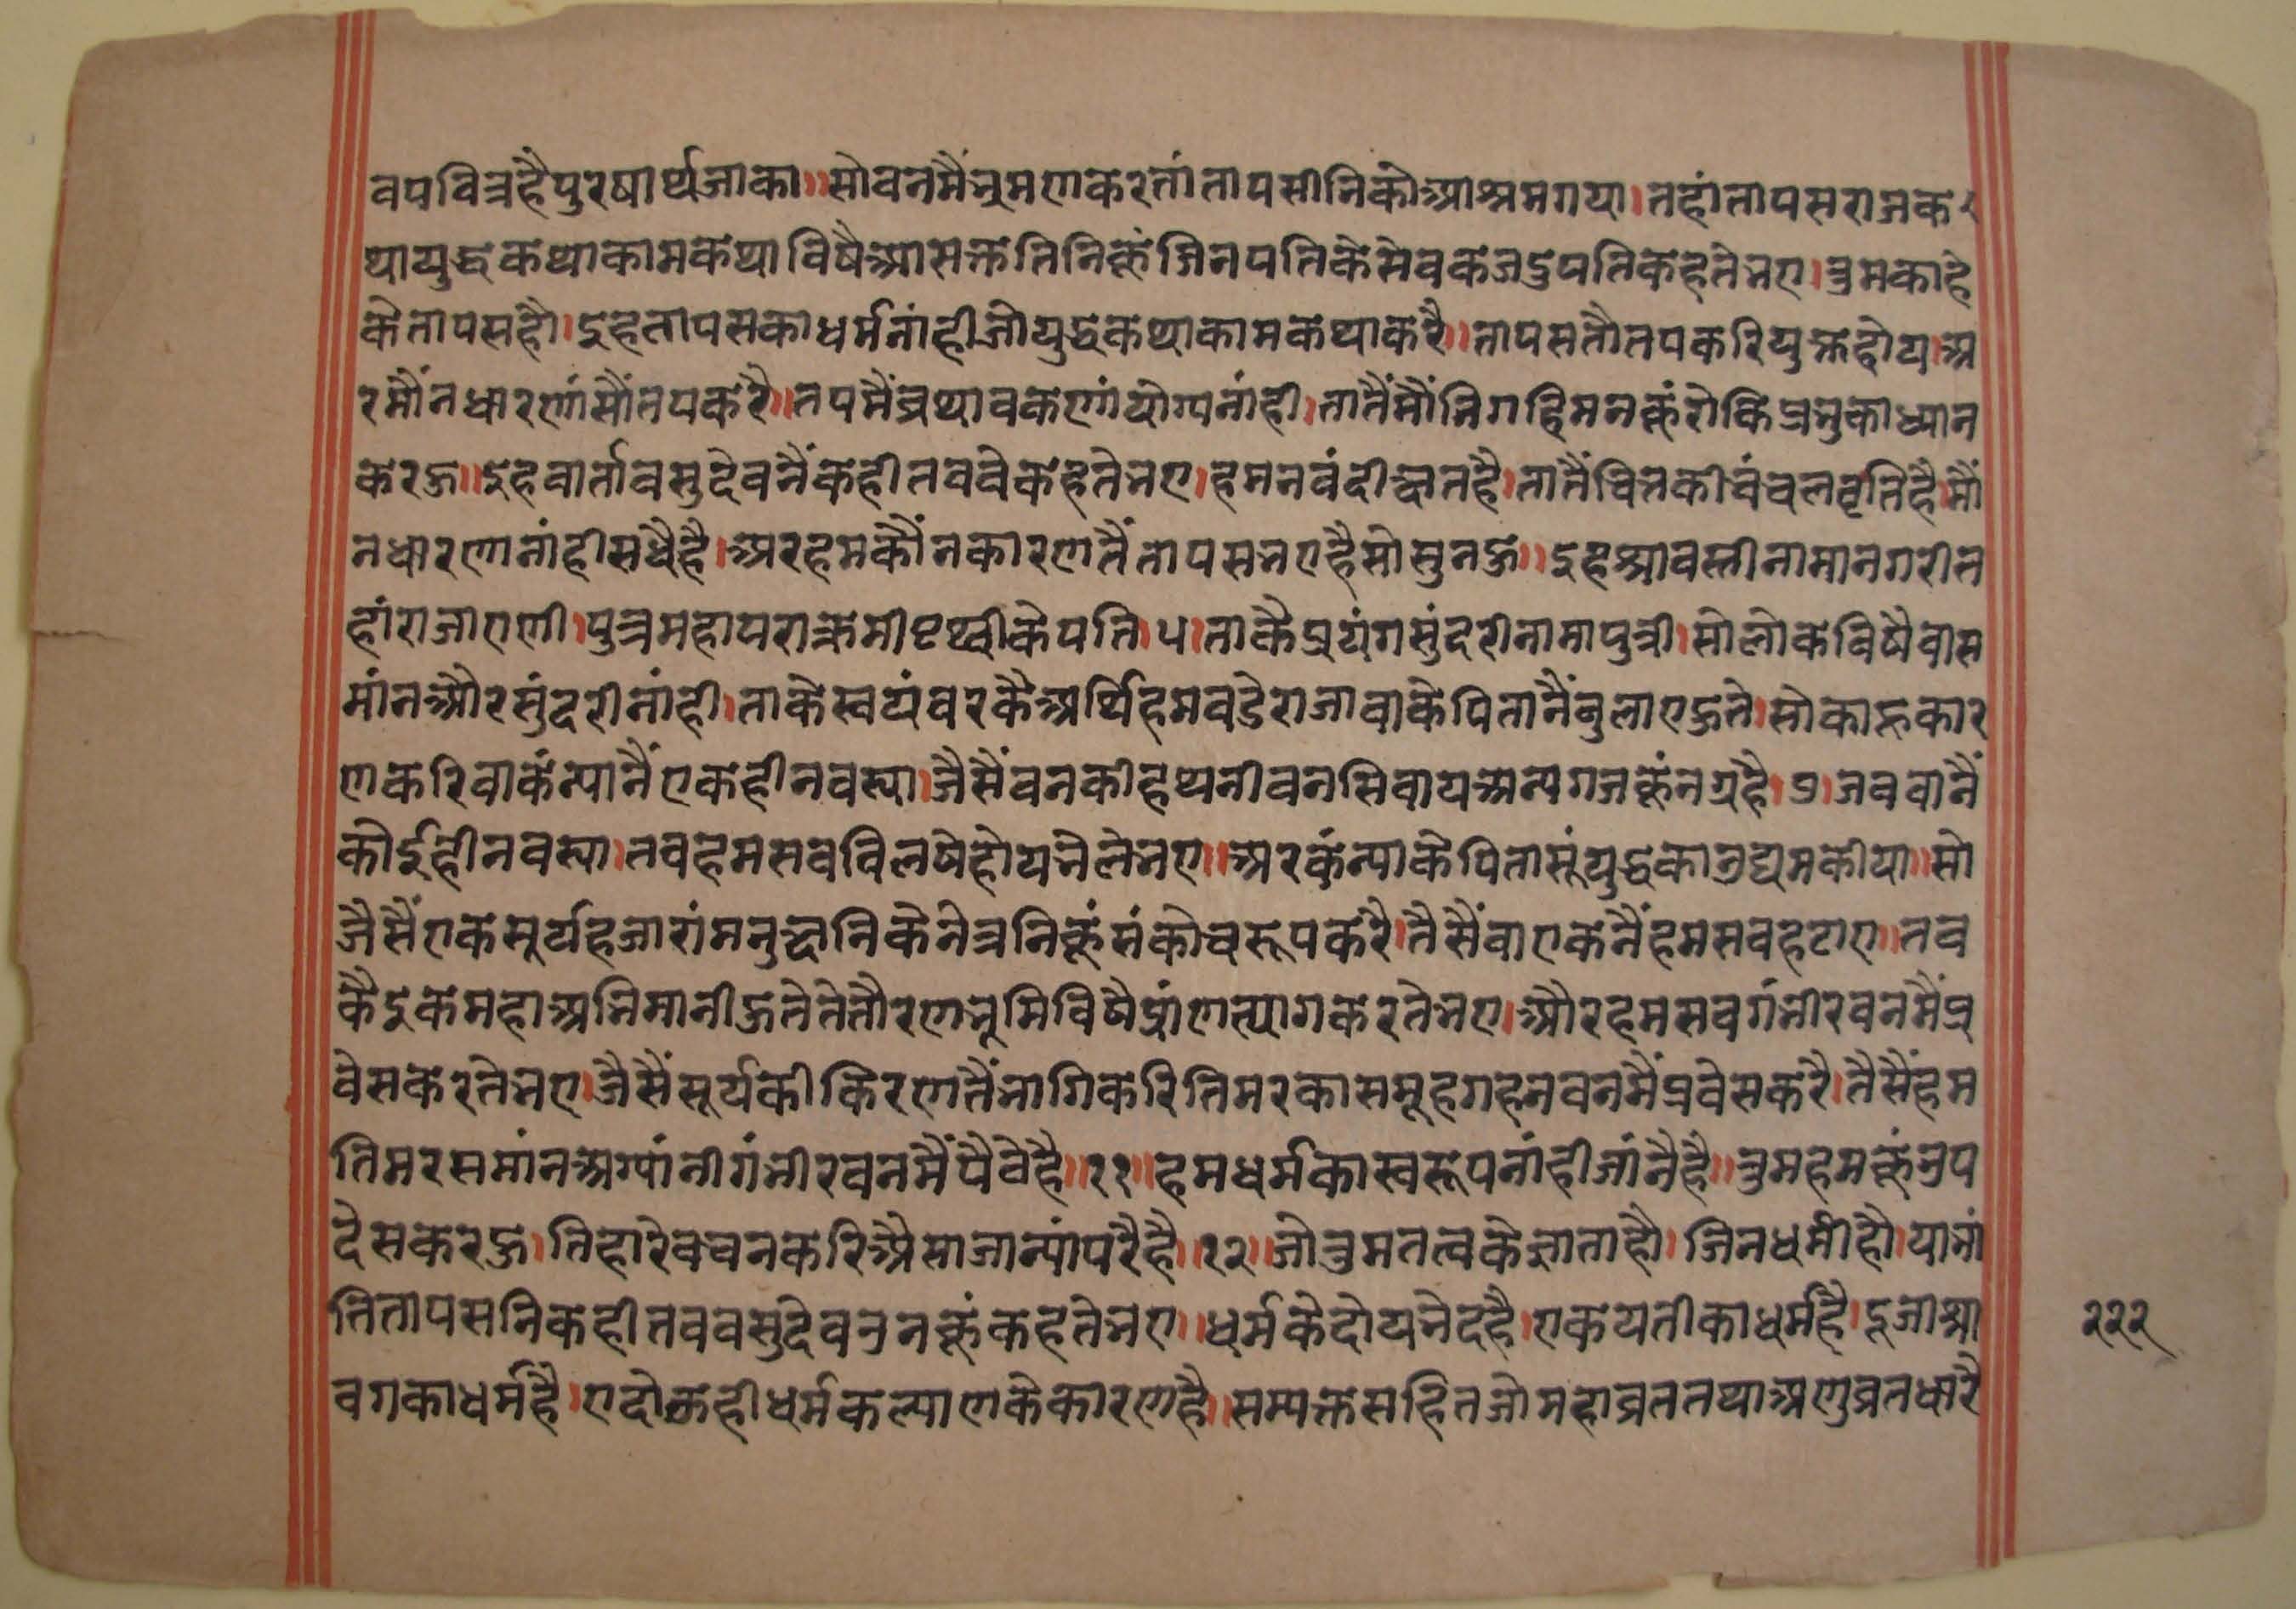 वपवित्रहैपुरषार्थजाका॥सोवनमैंभ्रमणकरतांतापसीनिकोआश्रमगया।तहांतापसराजक
थायुद्धकथाकामकथाविषैआसक्ततिनिकूंजिनपतिकेसेवकजदुपतिकहतेभए।तुमकाहे
केतापसहौ।इहतापसकाधर्मनांहीजोयुद्धकथाकामकथाकरै॥तापसतौतपकरियुक्तहोय।अ
रमौंनधारणांसौंतपकरै॥तपमैंव्रथावकणांयोग्यनांही।तातैंमौंनिगहिमनकूंरोकिप्रभुकाध्यान
करऊ॥इहवार्तावसुदेवनैंकहीतबवेकहतेभए।हमनवंदीक्षतहै।तातैंचितकीचंचलवृतिहै।मौं
नधारणनांहीसधैहै।अरहमकौंनकारणतैंतापसभएहैसोसुनऊ॥इहश्रावस्तीनामानगरीत
हांराजाएणीपुत्रमहापराक्रमीप्रथ्वीकेपति।५।ताकैप्रयंगसुंदरीनामापुत्री।सोलोकविषैवास
मांनऔरसुंदरीनांही।ताकेस्वयंवरकैअर्थिहमबडेराजावाकेपितानैंबुलाएऊते।सोकाहूकार
णकरिवाकंन्यानैंएकहीनवस्या।जैसैंवनकीहथनीवनसिवायअन्यगजकूंनग्रहै।९।जबवानैं
कोईहीनवस्या।तबहमसबविलषेहोयभेलेभए॥अरकंन्याकेपितासूंयुद्धकाउद्यमकीया॥सो
जैसैंएकसूर्यहजारांमनुष्यनिकेनेत्रनिकूंसंकोचरूपकरै।तैसैंवाएकनैंहमसबहटाए॥तब
कैइकमहाअभिमानीऊतेतेतौरणभूमिविषैप्रांणत्यागकरतेभए।औरहमसबगंभीरवनमैंप्र
वेसकरतेभए।जैसैंसूर्यकीकिरणतैंभागिकरितिमरकासमूहगहनवनमैंप्रवेसकरै।तैसैंहम
तिमरसमांनअग्यांनीगंभीरवनमैंपैवेहै॥११॥हमधर्मकास्वरूपनांहीजांनैहै॥तुमहमकूंउप
देसकरऊ।तिहारेवचनकरिऐसाजान्यांपरैहै॥१२॥जोतुमतत्वकेज्ञाताहौ।जिनधर्मीहौ।याभां
तितापसनिकहीतबवसुदेवउनकूंकहतेभए॥धर्मकेदोयभेदहै।एकयतीकाधर्महै।दूजाश्रा
वगकाधर्महै।एदोऊहीधर्मकल्याणकेकारणहै॥सम्यक्तसहितजोमहाव्रततथाअणुव्रतधारै
२२२